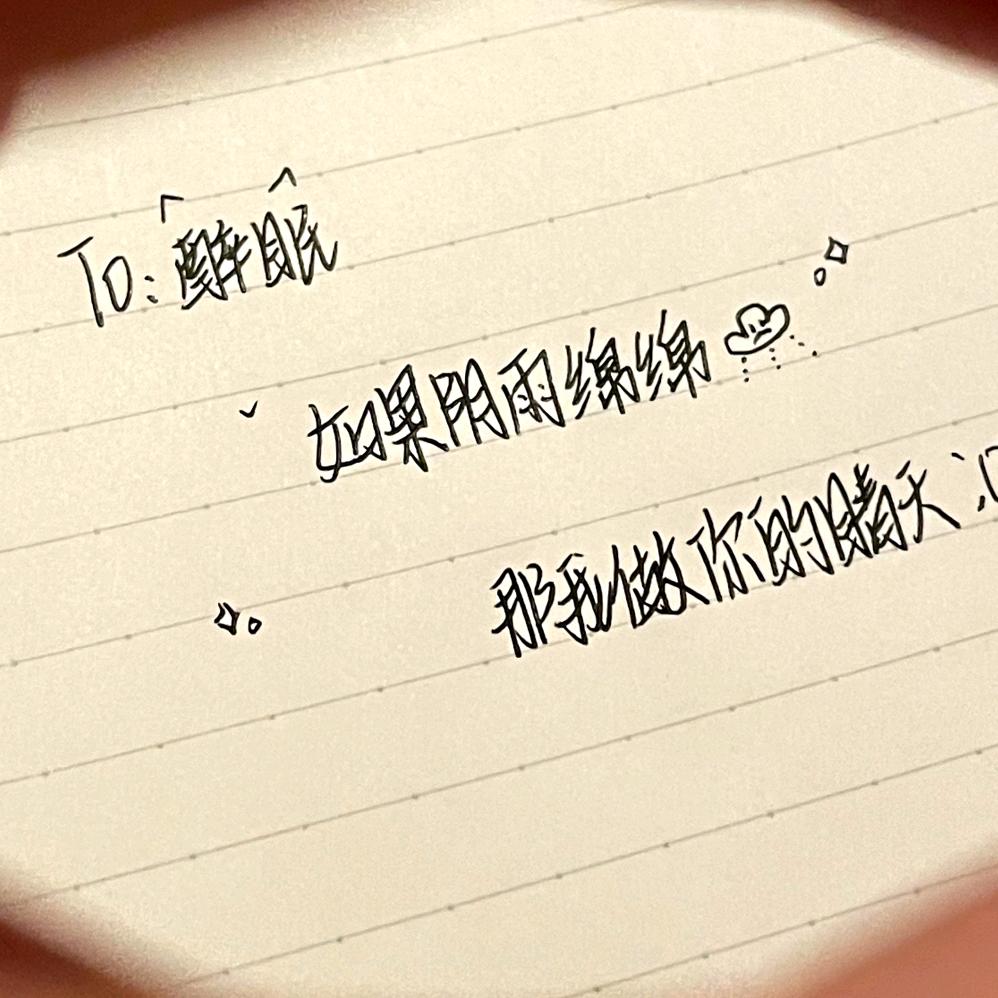 To: 醉眠
如果阴雨绵绵
那我做你的晴天